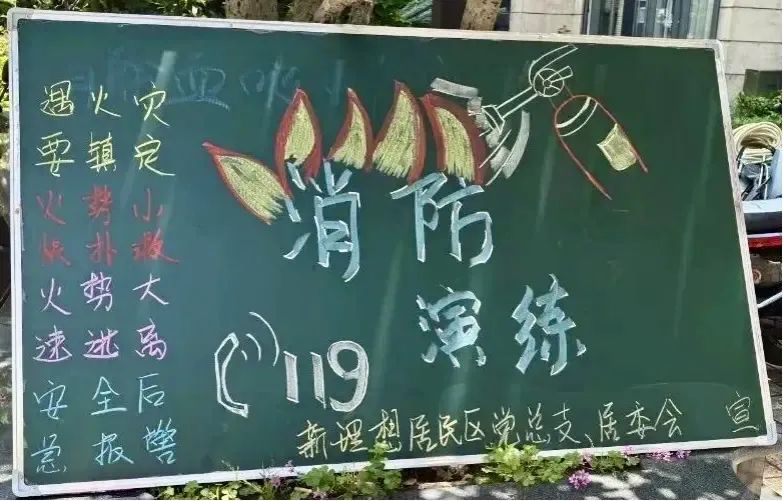 遇火灾
要镇定
火势小
快扑救
火势大
速逃离
安全后
急报警
消防
演练
119
新理想居民区党总支、居委会 宣